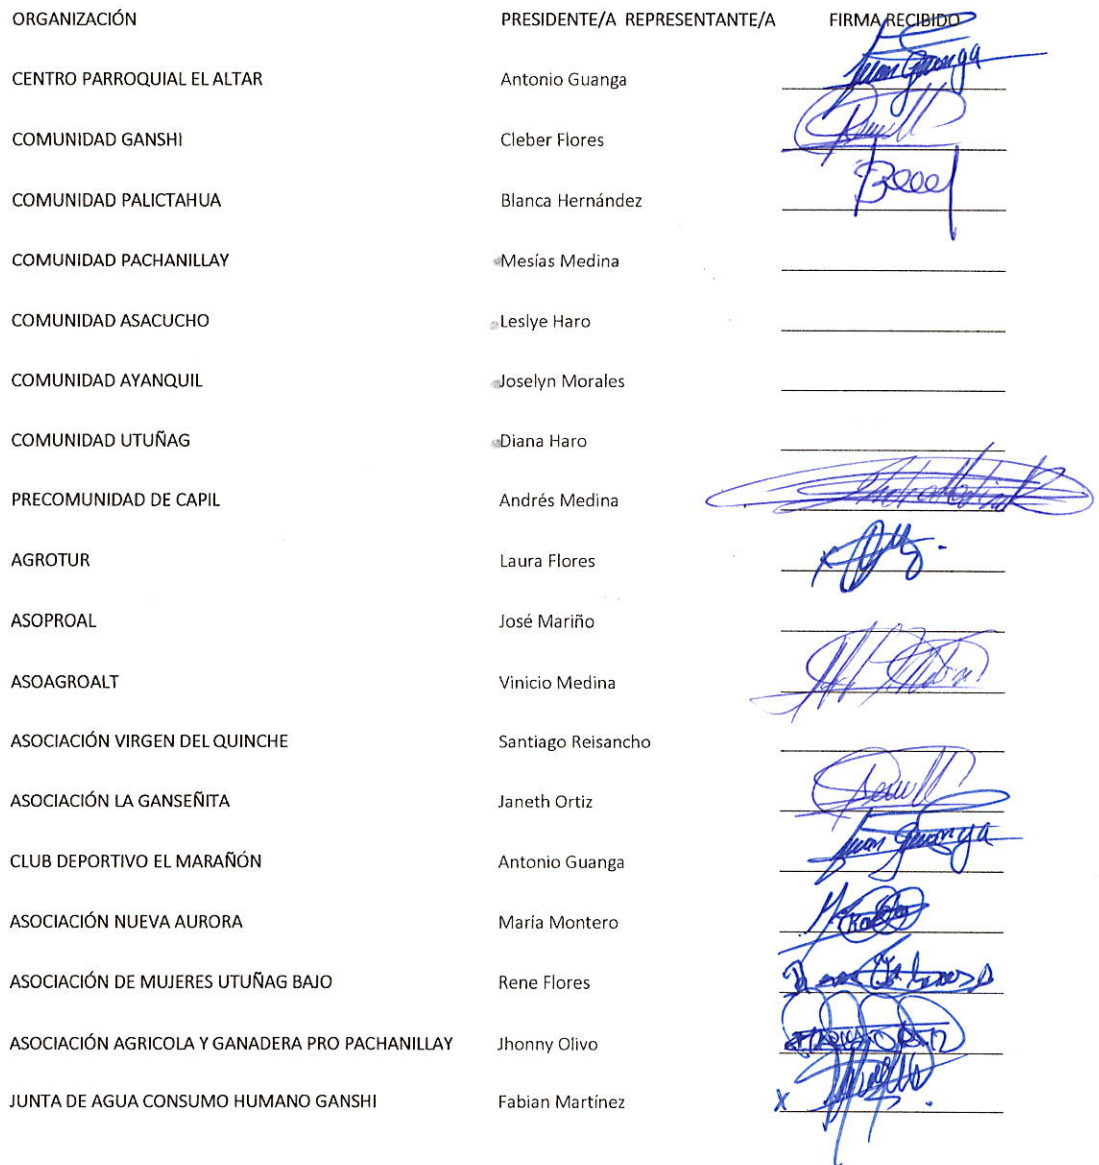 ORGANIZACIÓN PRESIDENTE/A REPRESENTANTE/A FIRMA RECIBIDO
CENTRO PARROQUIAL EL ALTAR Antonio Guanga Juan Guanga
COMUNIDAD GANSHI Cleber Flores
COMUNIDAD PALICTAHUA Blanca Hernández
COMUNIDAD PACHANILLAY Mesías Medina
COMUNIDAD ASACUCHO Leslye Haro
COMUNIDAD AYANQUIL Joselyn Morales
COMUNIDAD UTUÑAG Diana Haro
PRECOMUNIDAD DE CAPIL Andrés Medina
AGROTUR Laura Flores
ASOPROAL José Mariño
ASOAGROALT Vinicio Medina
ASOCIACIÓN VIRGEN DEL QUINCHE Santiago Reisancho
ASOCIACIÓN LA GANSEÑITA Janeth Ortiz
CLUB DEPORTIVO EL MARAÑÓN Antonio Guanga Juan Guanga
ASOCIACIÓN NUEVA AURORA María Montero
ASOCIACIÓN DE MUJERES UTUÑAG BAJO Rene Flores
ASOCIACIÓN AGRICOLA Y GANADERA PRO PACHANILLAY Jhonny Olivo
JUNTA DE AGUA CONSUMO HUMANO GANSHI Fabian Martínez X